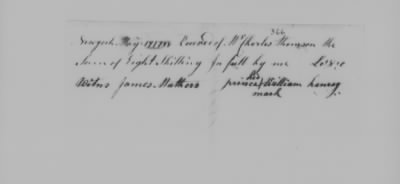 366
Newyork May Received of Mr Charles Thomson the
Sum of Eight Shilling In full by me
his
Witns James Mathers prince X William henery
mark